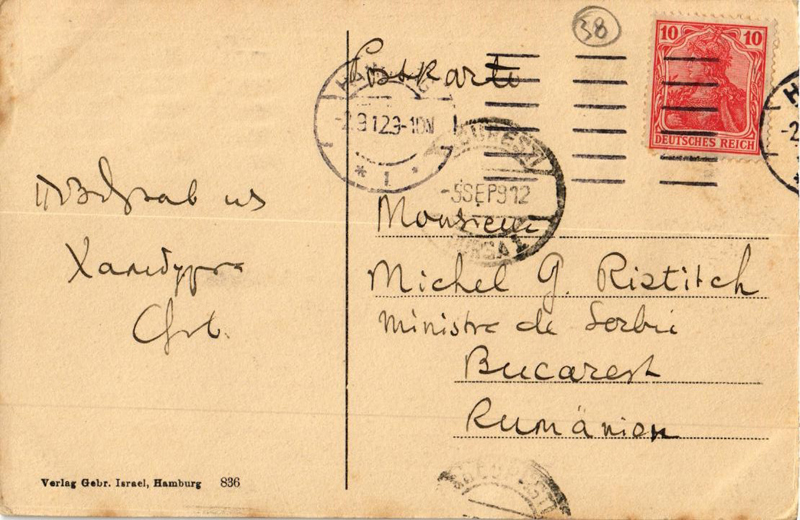 38
10 10
DEUTSCHES REICH
Postkarte
-2.9.12.9-10N
* 1 *
BUCUREȘTI
-5SEP912
Поздрав из
Хамбурга
Monsieur
Michel G. Ristitch
Ministre de Serbie
Bucarest
Rumänien
Verlag Gebr. Israel, Hamburg 836